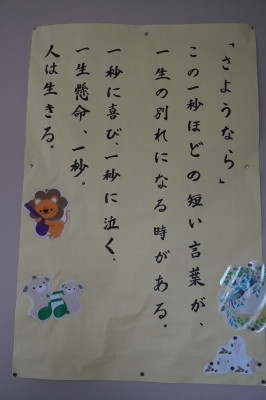 「さようなら」
この一秒ほどの短い言葉が、
一生の別れになる時がある。
一秒に喜び、一秒に泣く、
一生懸命、一秒。
人は生きる。